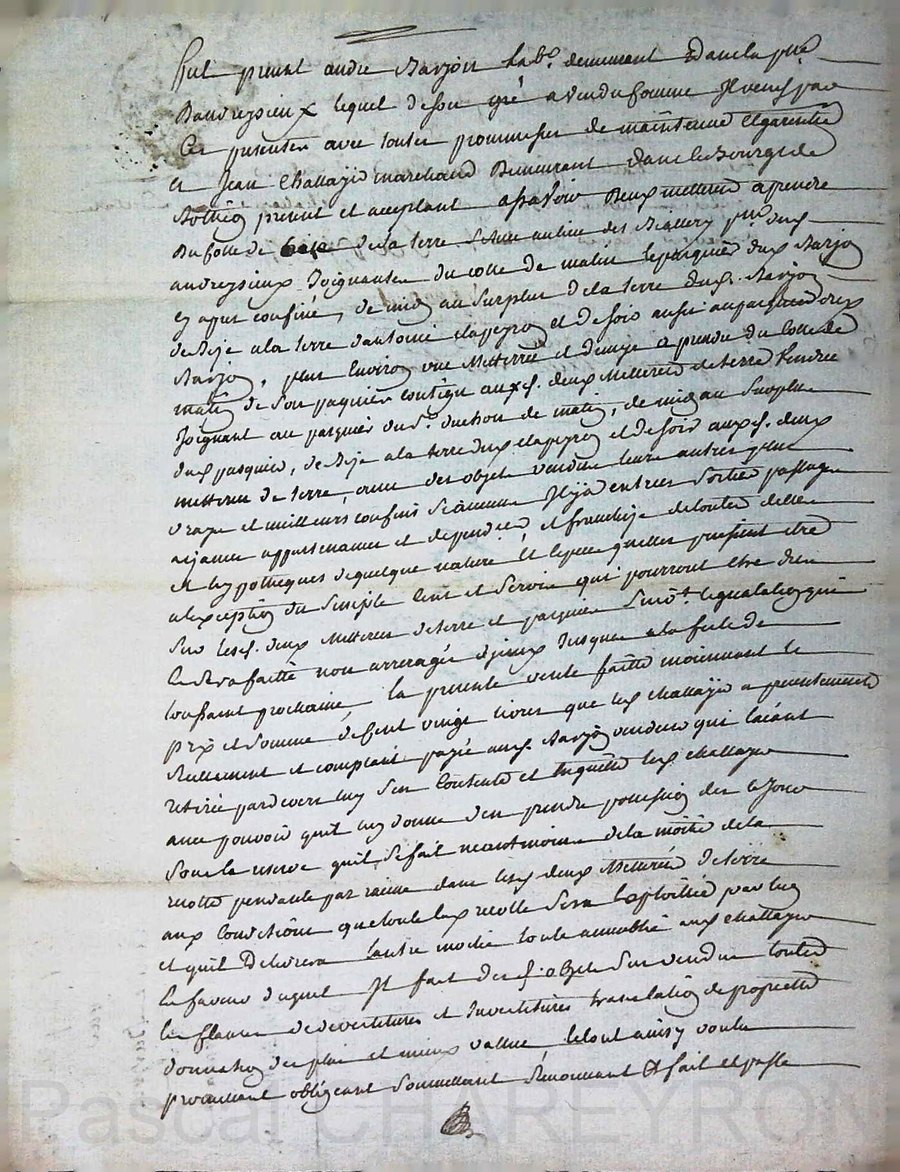 fut present andre Marjon lab.r demeurant dans la p.sse
Dandrezieux lequel de son gré a vendu comme Il vend par
Ces presentes avec toutes promesses de maintenue et garentie
a Jean Challaye marchand Demeurant dans le Bourg de
present et acceptant asavoir Deux metterées a prendre
Du Cotté de de la terre située au lieu des p.sse dud.
andrezieux Joignantes du cotté de matin le pasquier dud. Marjon
cy apres confiné, de midy au surplus de la terre dud. Marjon
de Bize a la terre d'antoine clapeyron et de soir aussi dud.
Marjon, plus Environ une Metterée et demye a prendre du Cotté de
matin de son pasquier contigu auxd. deux Metterées de terre vendues
Joignant au pasquier du S.r duchon de matin, de midy au surplus
dud. pasquier, de Bize a la terre dud. clapeyron et de soir auxd. deux
metterées de terre, avec des objets vendus leurs autres plus
vrays et meilleurs confins sy aucuns Il y a entrées sorties passages
aizances appartenances et dependces et franchise de toutes dettes
et hypotheques de quelque nature et espece quelles puissent etre
a l'exception du simple Cent et Servis qui pourront etre dus
Sur lesd. deux Metterées de terre et pasquier
non arreragés Jusques a la feste de
toussaint prochaine La presente vente faitte moienant le
prix et somme de Cent vingt livres que led. Challaye a presentement
Reellement et comptant payé aud. Marjon vendeur qui layant
retirée pardevers luy s'en contente et en quitte led. Challaye
avec pouvoir quil luy donne d'en prendre possession des ce Jour
Sous la reserve quil se fait neantmoins de la moitié de la
recolte pendante par racine dans lesd. deux Metterées de terre
aux Conditions que toute lad. recolte sera Exploittée par luy
et quil Delivrera lautre moitié aud. Challaye
En faveur duquel Il fait desd. objets sus vendus toutes
les clauses de devestitures et Investitures translation de proprietté
donnation de plus et mieux vallue le tout ainsy voulu
promettant obligeant soumettant Renonnant &. fait et passé
Pascal CHAREYRON